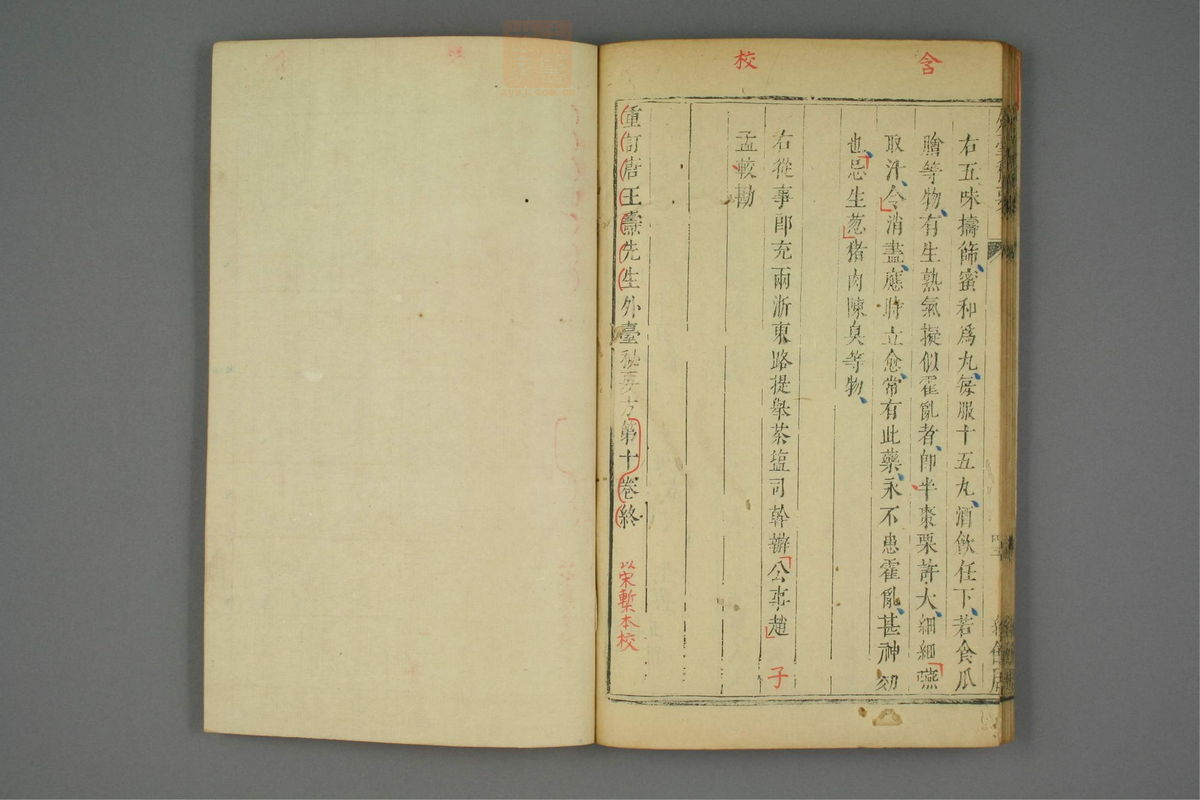 含
校
右五味擣篩蜜和爲丸每服十五丸酒飲任下若食瓜
膾等物有生熟氣擬似霍亂者卽半棗栗許大細細嚥
取汁令消盡應時立愈常有此藥永不患霍亂甚神効
也忌生葱猪肉陳臭等物
右從事郎充兩浙東路提舉茶塩司幹辦公事趙 子
孟較勘
重訂唐王燾先生外臺秘要方第十卷終
以宋槧本校